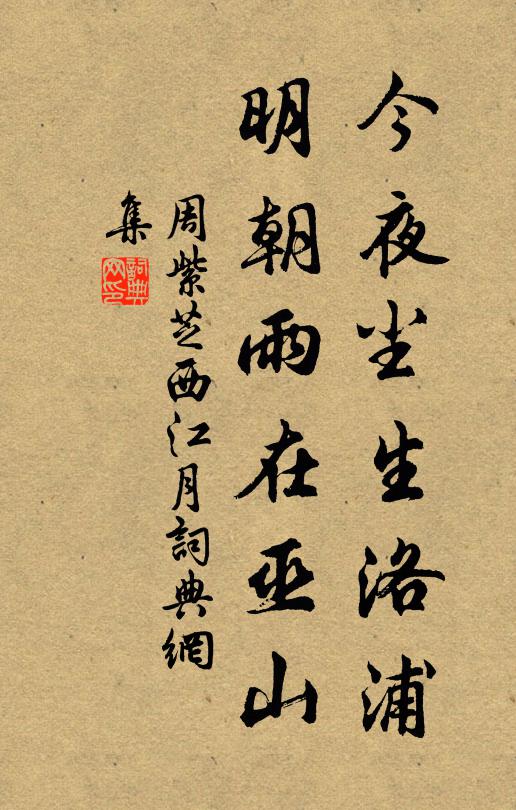 今夜尘生洛浦
明朝雨在巫山
周紫芝西江月詞典網
集
詞典
网印